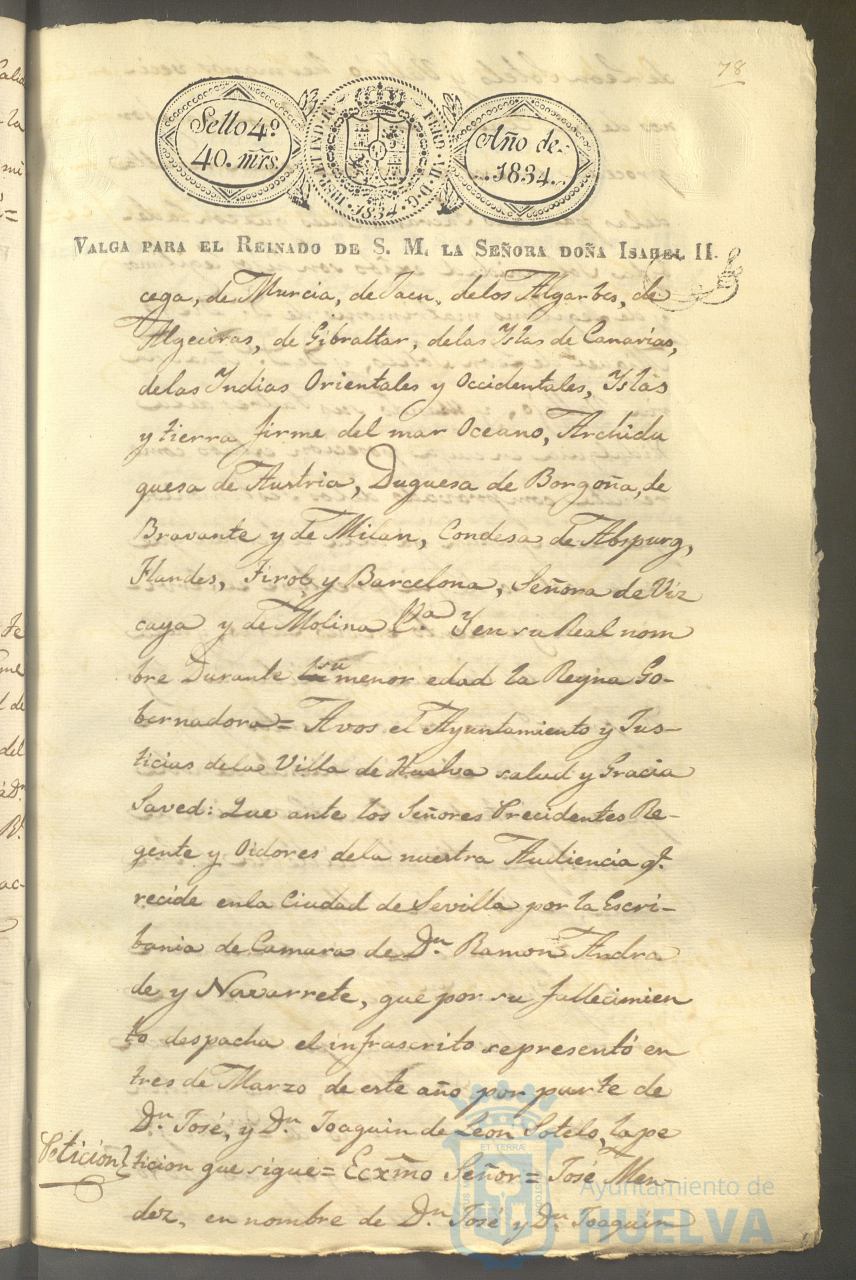 78
Sello 4º
40. mrs.
HISP. ET IND. R. FERD. VII. D. G.
1834
Año de
1834
VALGA PARA EL REINADO DE S. M. LA SEÑORA DOÑA ISABEL II.
cega, de Murcia, de Jaen, delos Algarbes, de
Algeciras, de Gibraltar, delas Yslas de Canarias,
delas Yndias Orientales y Occidentales, Yslas
y tierra firme del mar Oceano, Archidu
quesa de Austria, Duguesa de Borgoña, de
Bravante y de Milan, Condesa de Abspurg,
Flandes, Tirol, y Barcelona, Señora de Viz
caya y de Molina &.a Y en su Real nom
bre Durante su menor edad la Reyna Go-
bernadora = Avos el Ayuntamiento y Jus-
ticias dela Villa de Huelva salud y Gracia
Saved: Que ante los Señores Precidentes Re-
gente y Oidores dela nuestra Audiencia q.e
recide enla Ciudad de Sevilla por la Escri-
bania de Camara de D.n Ramon Andra
de y Navarrete, que por su fallecimien
to despacha el infrascrito representó en
tres de Marzo de este año por parte de
D.n José, y D.n Joaquin de Leon Sotelo, la pe
Peticion
ticion que sigue = Ecxmo Señor = José Men-
dez, en nombre de D.n José y D.n Joaquin
Ayuntamiento de
HUELVA